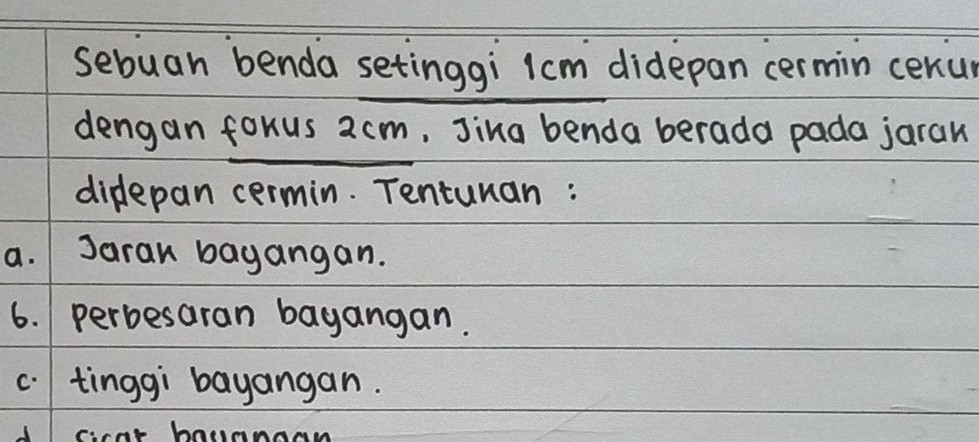 Sebuah benda setinggi 1cm didepan cermin cekun
dengan fokus 2cm, Jika benda berada pada jarak
didepan cermin. Tentukan :
a. Jarak bayangan.
b. perbesaran bayangan.
c. tinggi bayangan.
d sifat bayangan